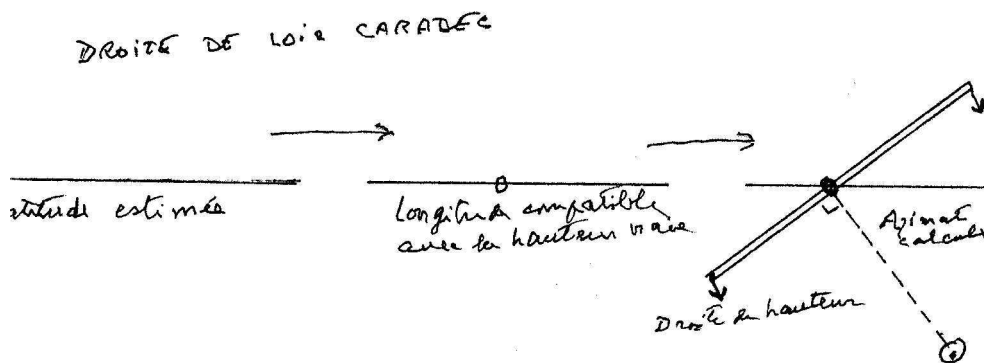 DROITE DE LOIC CARADEC
atitude estimée
Longitude compatible
avec la hauteur vraie
Azimut
calcul
Droite de hauteur